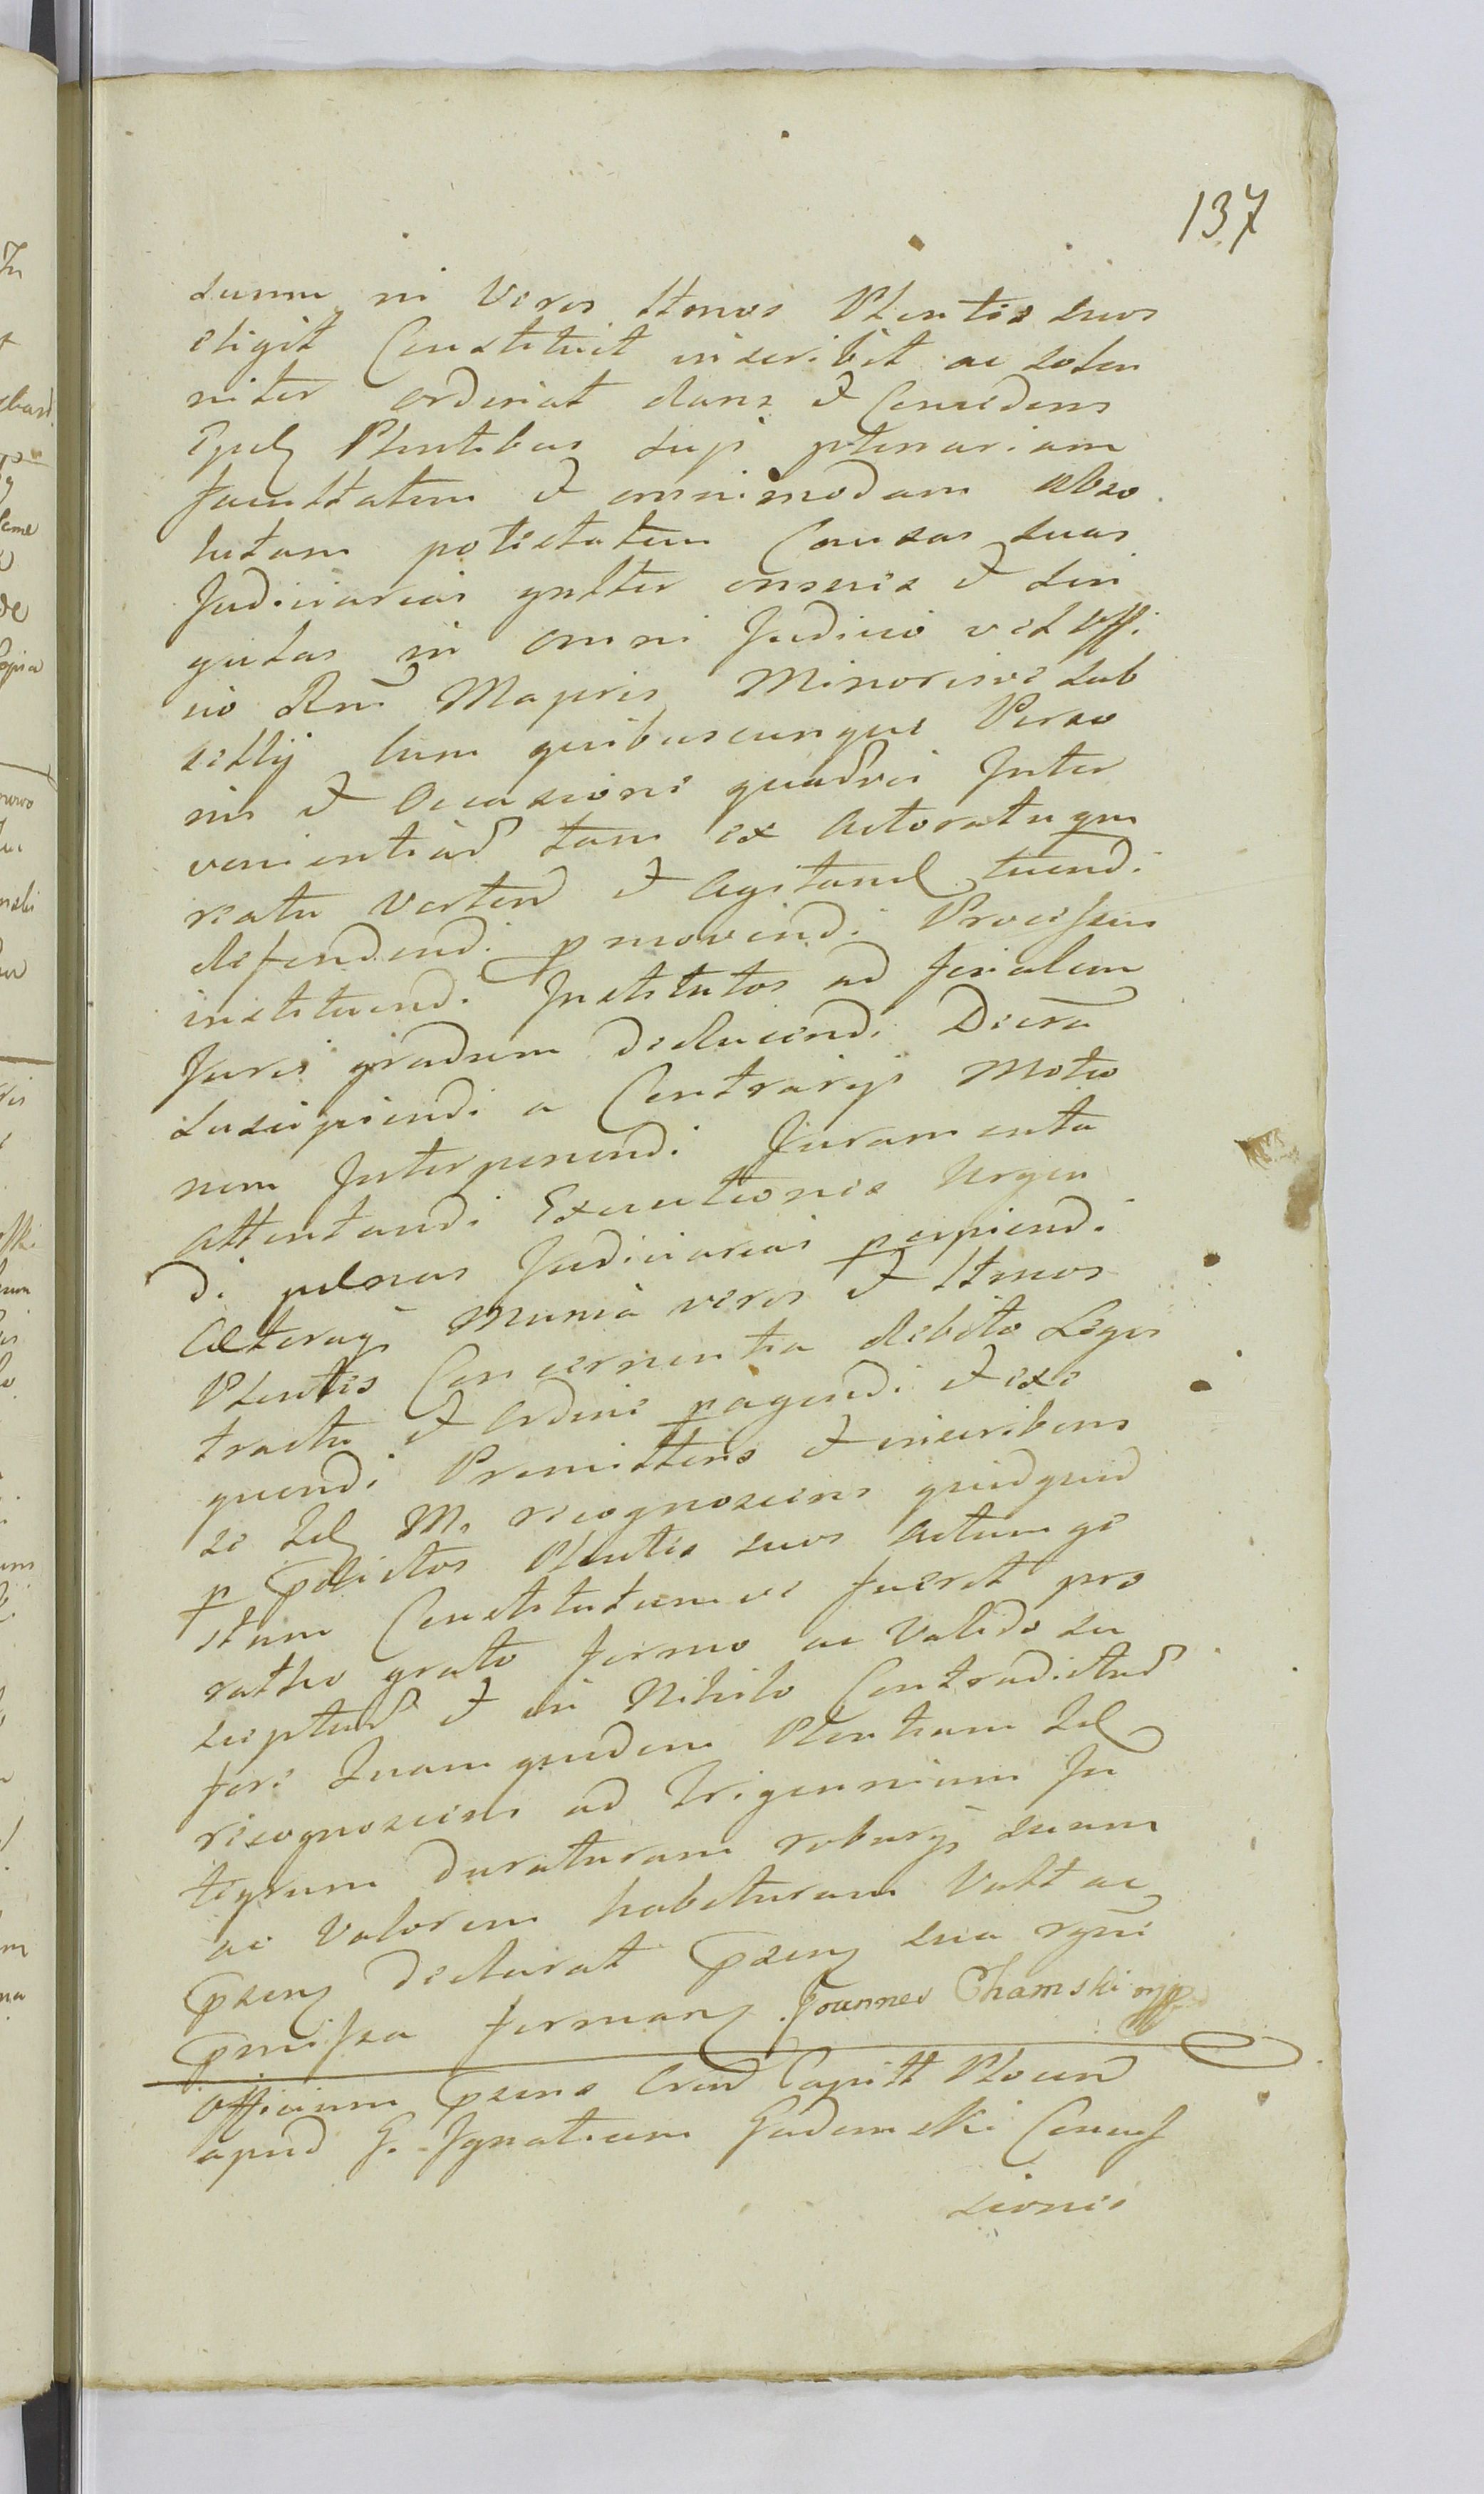 137
dum in Veros Ltmos Plentes suos
eligit Constituit inscribit ac solen
niter ordinat dans et Concedens
Plentibus suis plenariam
facultatem et omnimodam abso
lutam potestatem Causas suas
Judiciarias gnlter omnes et sin
gulas in omni Judicio vel Offi
cio Rni Majoris Minorisve sub
sellij cum quibuscunque Perso
nis et Occasione quadvis Inter
venientiad tam ex Actoratu qm
reatu Vertend et Agitand tuendi
defendendi pmovendi Processus
instituendi Institutos ad finalem
Juris gradum deducendi Decra
suscipiendi a Contrarijs Motio
nem Interponendi Juramenta
attentandi Executiones Urgen
di pelnas Judiciarias pcipiendi
Coeteraq Munia veros et Ltmos
Plentes Concernentia debito Legis
tractu et ordine pagendi et exe
quendi Promittens et inscribens
se M. recognoscens quidquid
p pdictos Plentes suos Actum ge
stum Constitutumve fuerit pro
ratho grato firmo ac Valido su
sceptur et in Nihilo Contradictur
fore Quam quidem Plentiam
recognoscens ad Trigennium In
tegrum duraturam roburq suum
ac Valorem habituram Vult ac
psenq declarat psenq sua
pmissa firmanq Joannes Chamski mpp
Officium psens Crend Capitt Plocen
apud G. Ignatium Gadomski Concef
sionis